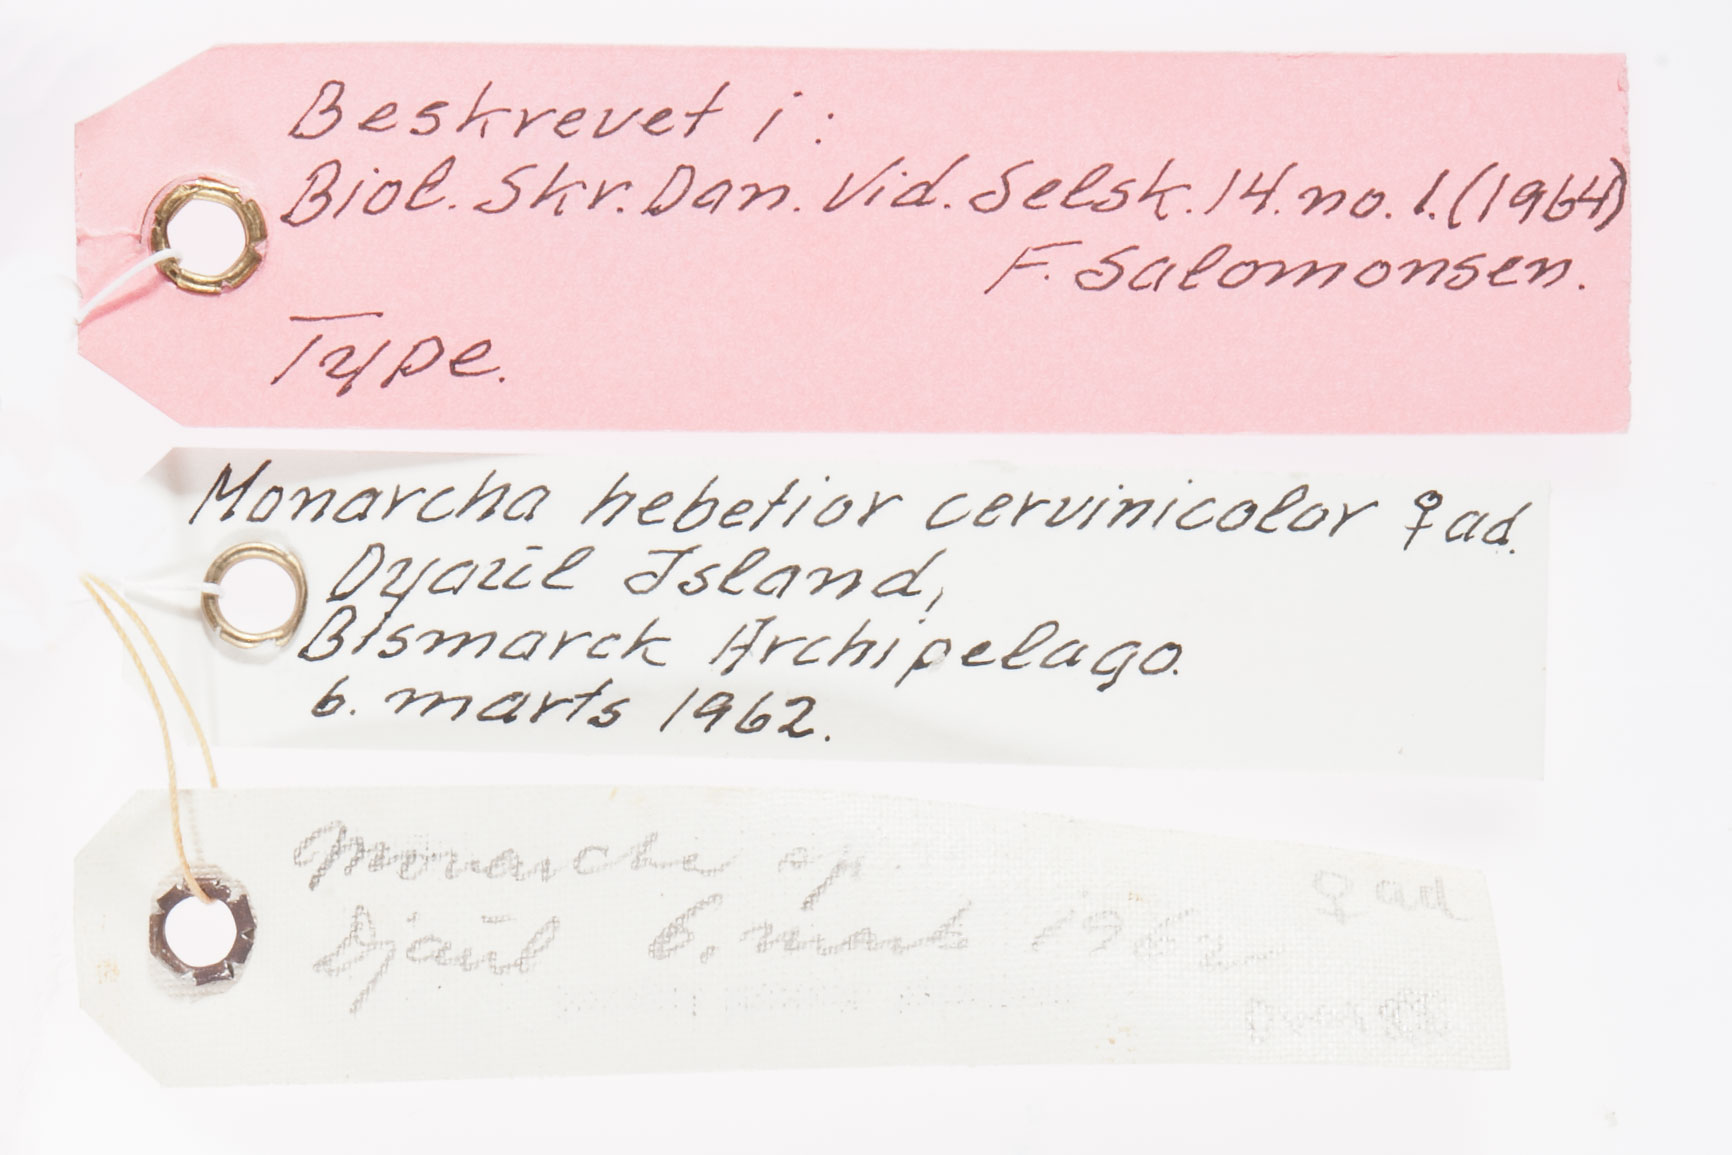 Beskrevet i:
Biol. Skr. Dan. Vid. Selsk. 14. no. 1. (1964)
F. Salomonsen.
Type.
Monarcha hebetior cervinicolor ♀ ad.
Dyaūl Island,
Bismarck Archipelago.
6. marts 1962.
Monarcha sp
♀ ad
Djaūl 6. marts 1962